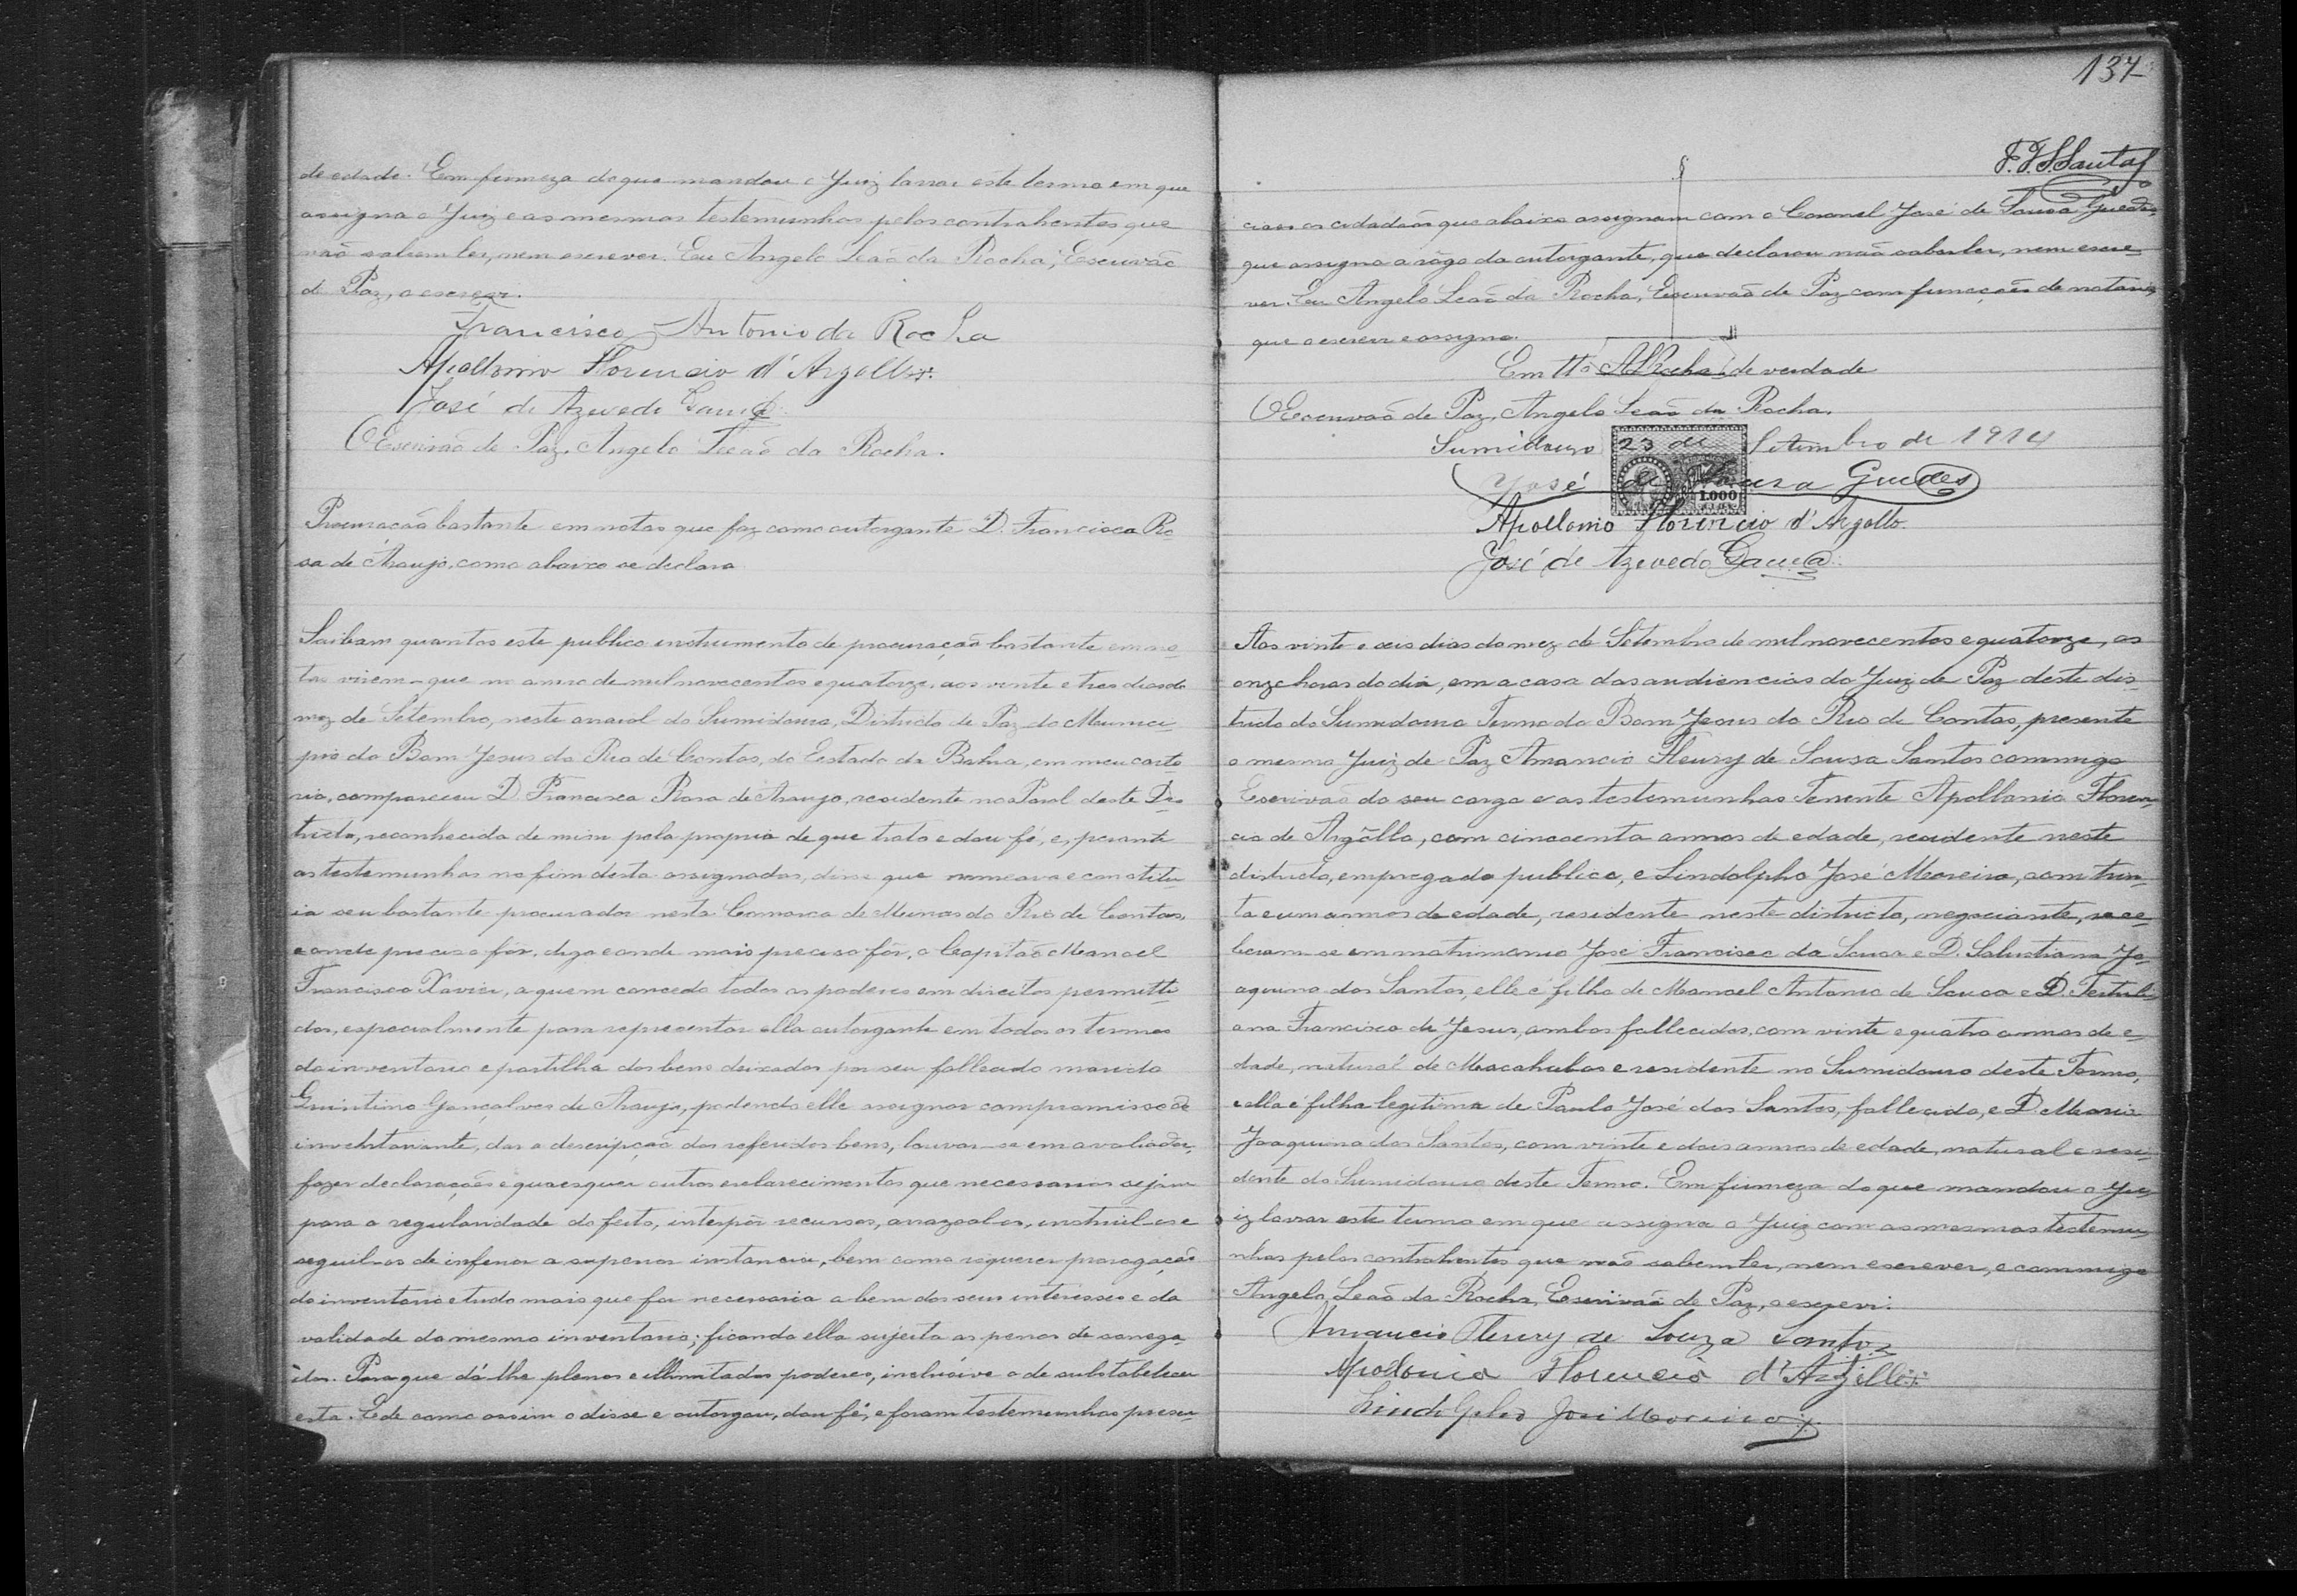 de edade. Em firmeza do que mandou o Juiz lavrar este termo em que
assigna o Juiz e as mesmas testemunhas pelos contrahentes que
não sabem ler, nem escrever. Eu Angelo Leão da Rocha, Escrivão
de Paz, o escrevi.
Francisco Antonio da Rocha
Apollonio Florencio d'Argollo.
José de Azevedo
O Escrivão de Paz, Angelo Leão da Rocha.
Procuração bastante em notas que faz como outorgante D. Francisca Ro-
sa de Araujo, como abaixo se declara
Saibam quantos este publico instrumento de procuração bastante em no-
tas virem que no anno de mil novecentos e quatorze, aos vinte e tres dias do
mez de Setembro, neste arraial do Sumidouro, Districto de Paz do Munici-
pio do Bom Jesus do Rio de Contas, do Estado da Bahia, em meu carto-
rio, compareceu D. Francisca Rosa de Araujo, residente no deste Dis-
tricto, reconhecida de mim pela propria de que trato e dou fé, e, perante
as testemunhas no fim desta assignadas, disse que nomeava e constitu-
ia seu bastante procurador nesta Comarca de Minas do Rio de Contas,
e onde preciso fôr, digo e onde mais preciso fôr, o Capitão Manoel
Francisco Xavier, a quem concede todos os poderes em direitos permitti-
dos, especialmente para representar ella outorgante em todos os termos
do inventario e partilha dos bens deixados por seu fallecido marido
Quintino Gonçalves de Araujo, podendo elle assignar compromisso de
inventariante, dar a descripção dos referidos bens, louvar-se em avaliador,
fazer declarações e quaesquer outros esclarecimentos que necessarios sejam
para a regularidade do feito, interpôr recursos, arrazoal-os, instruil-os e
seguil-os de inferior a superior instancia, bem como requerer prorogação
do inventario e tudo mais que for necessario a bem dos seus interesses e da
validade do mesmo inventario; ficando ella sujeita as penas de sonega-
dos. Para que dá-lhe plenos e illimitados poderes, inclusive o de substabelecer
esta. E de como assim o disse e outorgou, dou fé, e foram testemunhas presen-
137
F. F. S. Santos
ciaes os cidadãos que abaixo assignam com o Coronel José de Sousa Guedes,
que assigna a rôgo da outorgante, que declarou não saber ler, nem escre-
ver. Eu Angelo Leão da Rocha, Escrivão de Paz com funcções de notario,
que o escrevi e assigno.
Em ttº ALRocha de verdade
O Escrivão de Paz, Angelo Leão da Rocha.
Sumidouro 23 de Setembro de 1914
1.000
José de Souza Guedes
Apollonio Florencio d'Argollo.
José de Azevedo
Aos vinte e seis dias do mez de Setembro de mil novecentos e quatorze, as
onze horas do dia, em a casa das audiencias do Juiz de Paz deste dis-
tricto do Sumidouro Termo do Bom Jesus do Rio de Contas, presente
o mesmo Juiz de Paz Amancio Fleury de Sousa Santos commigo
Escrivão do seu cargo e as testemunhas Tenente Apollonio Floren-
cio de Argôllo, com cincoenta annos de edade, residente neste
districto, empregado publico, e Lindolpho José Moreira, com trin-
ta e um annos de edade, residente neste districto, negociante, rece-
beram-se em matrimonio José Francisco de Sousa e D. Salustiana Jo-
aquina dos Santos, elle é filho de Manoel Antonio de Sousa e D. Tertuli-
ana Francisca de Jesus, ambos fallecidos, com vinte e quatro annos de e-
dade, natural de Macahubas e residente no Sumidouro deste Termo,
e ella é filha legitima de Paulo José dos Santos, fallecido, e D. Maria
Joaquina dos Santos, com vinte e dois annos de edade, natural e resi-
dente do Sumidouro deste Termo. Em firmeza do que mandou o Ju-
iz lavrar este termo em que assigna o Juiz com as mesmas testemu-
nhas pelos contrahentes que não sabem ler, nem escrever, e commigo
Angelo Leão da Rocha, Escrivão de Paz, o escrevi.
Amancio Fleury de Souza Santos
Apolonio Florencio d'Argollo
Lindolpho José Moreira